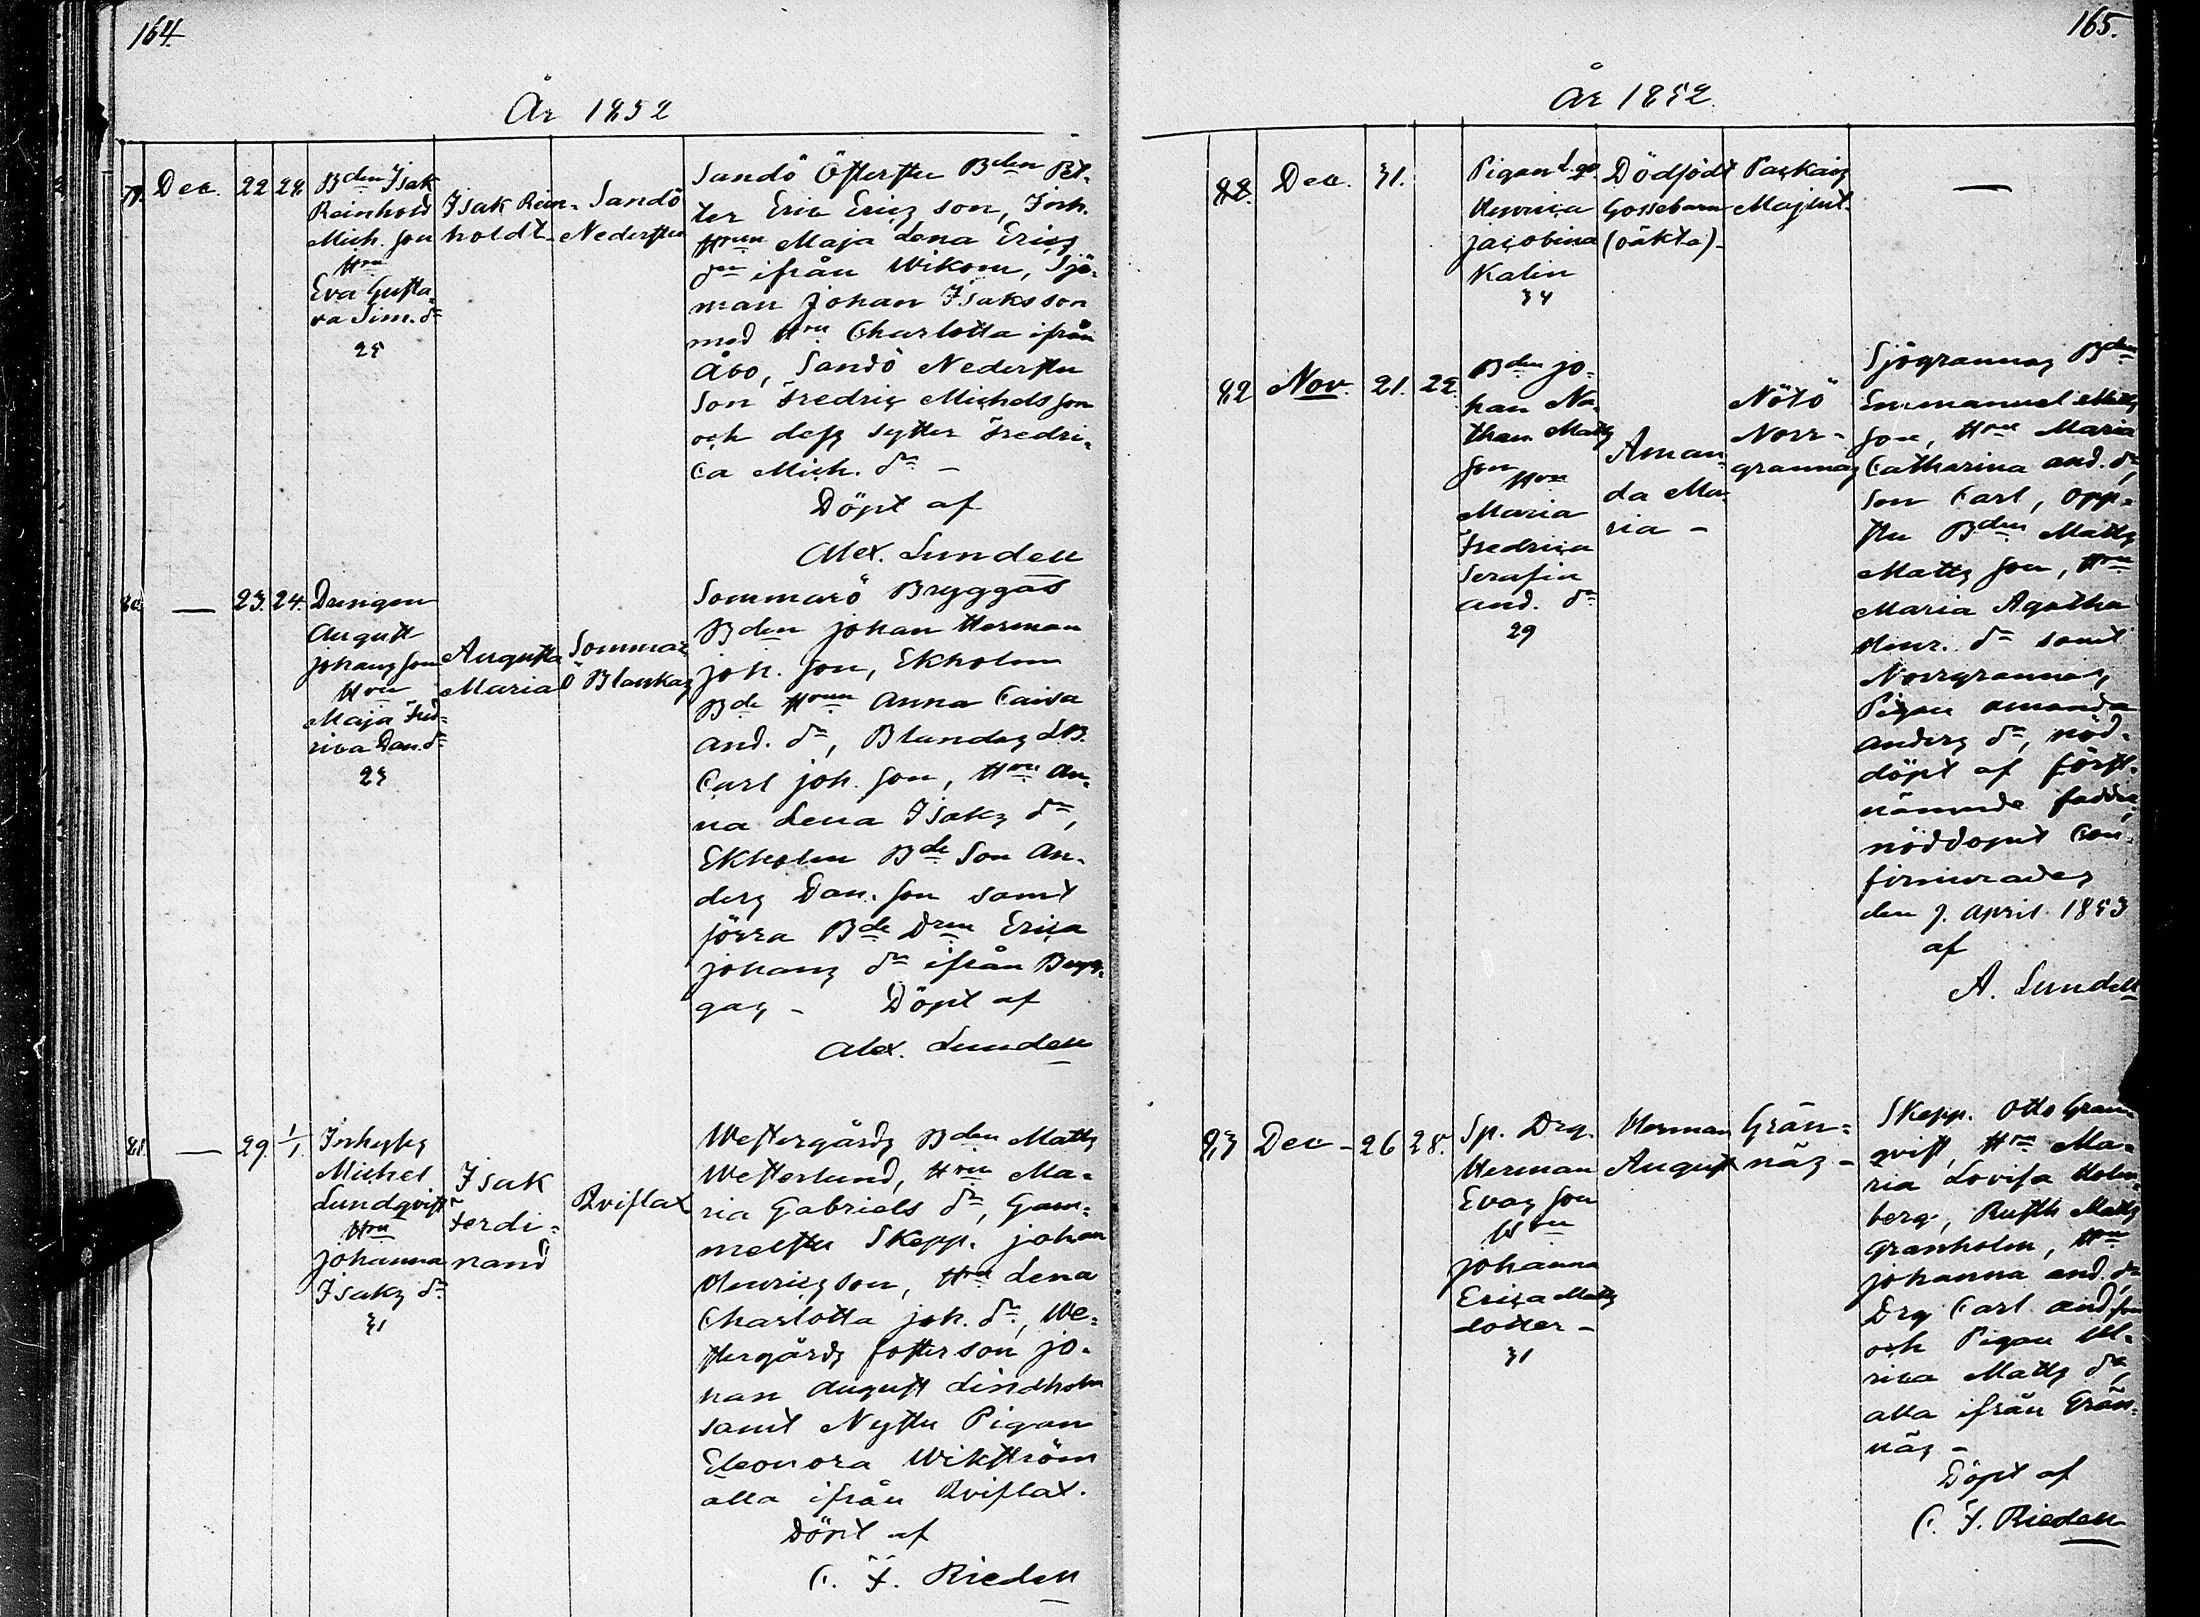 164.
År 1852
79. Dec. 22 28.
Bden Isak
Reinhold
Mich. son
Hru
Eva Gusta-
va Sim. dr
25
Isak Rein-
holdt
Sandö
Nederstu
Sandö Öfterstu Bden Pet-
ter Eric Erics son, Inh.
Hrun Maja Lena Erics
dr ifrån Wikom, Sjö-
man Johan Isaksson
med Hru Charlotta ifrån
Åbo, Sandö Nederstu
Son Fredric Michels son
och dess syster Fredri-
ca Mich. dr –
Döpt af
Alex. Lundell
80. — 23. 24.
Drengen
August
Johans son
Hru
Maja Fred-
rica Dan. dr
23
Augusta
Maria
Sommar-
ö Blankas
Sommarö Bryggas
Bden Johan Herman
Joh. son, Ekholm
Bde Hrun Anna Caisa
And. dr, Blandas LB.
Carl Joh. son, Hru An-
na Lena Isaks dr,
Ekholm Bde Son An-
ders Dan. son samt
Jörra Bde Dren Erica
Johans dr ifrån Bryg-
gas – Döpt af
Alex. Lundell
81. — 29 1/1
Inhyses
Michel
Lundqvist
Hru
Johanna
Isaks dr
31
Isak
Ferdi-
nand
Qviflax
Westergårds Bden Matts
Westerlund, Hru Ma-
ria Gabriels dr, Gam-
melstu Skepp. Johan
Henricsson, Hru Lena
Charlotta Joh. dr, We-
stergårds fosterson Jo-
han August Lindholm
samt Nystu Pigan
Eleonora Wikström
alla ifrån Qviflax.
Döpt af
C. F. Riedell
165.
År 1852.
88. Dec. 31.
Pigan
Henrica
Jacobina
Kalin
34
Dödfödt
Gossebarn
(oäkta)–
Majlut.
—
82 Nov. 21. 22.
Bden Jo-
han Na-
than Matts
son
Hru
Maria
Fredrica
Serafin
And. dr
29
Aman-
da Ma-
ria –
Nötö
Norr-
grannas
Sjögrannas Bden
Emmanuel Matts
son, Hru Maria
Catharina And. dr,
Son Carl, Opp-
stu Bden Matts
Matts son, Hru
Maria Agatha
Henr. dr samt
Norrgrannas
Pigan Amanda
Anders dr, nöd-
döpt af först-
nämnde fadder,
nöddopet Con-
firmerades
den 7. April 1853
af
A. Lundell
83 Dec – 26 28.
Sp. Drg.
Herman
Evas son
Hru
Johanna
Erica Matts
dotter –
31
Herman
August
Grän-
näs –
Skepp. Otto Gran-
qvist, Hru Ma-
ria Lovisa Holm-
berg, Rusth Matts
Granholm, Hru
Johanna And. dr,
Drg Carl And. son
och Pigan Ul-
rica Matts dr,
alla ifrån Grän-
näs –
Döpt af
C. F. Riedell